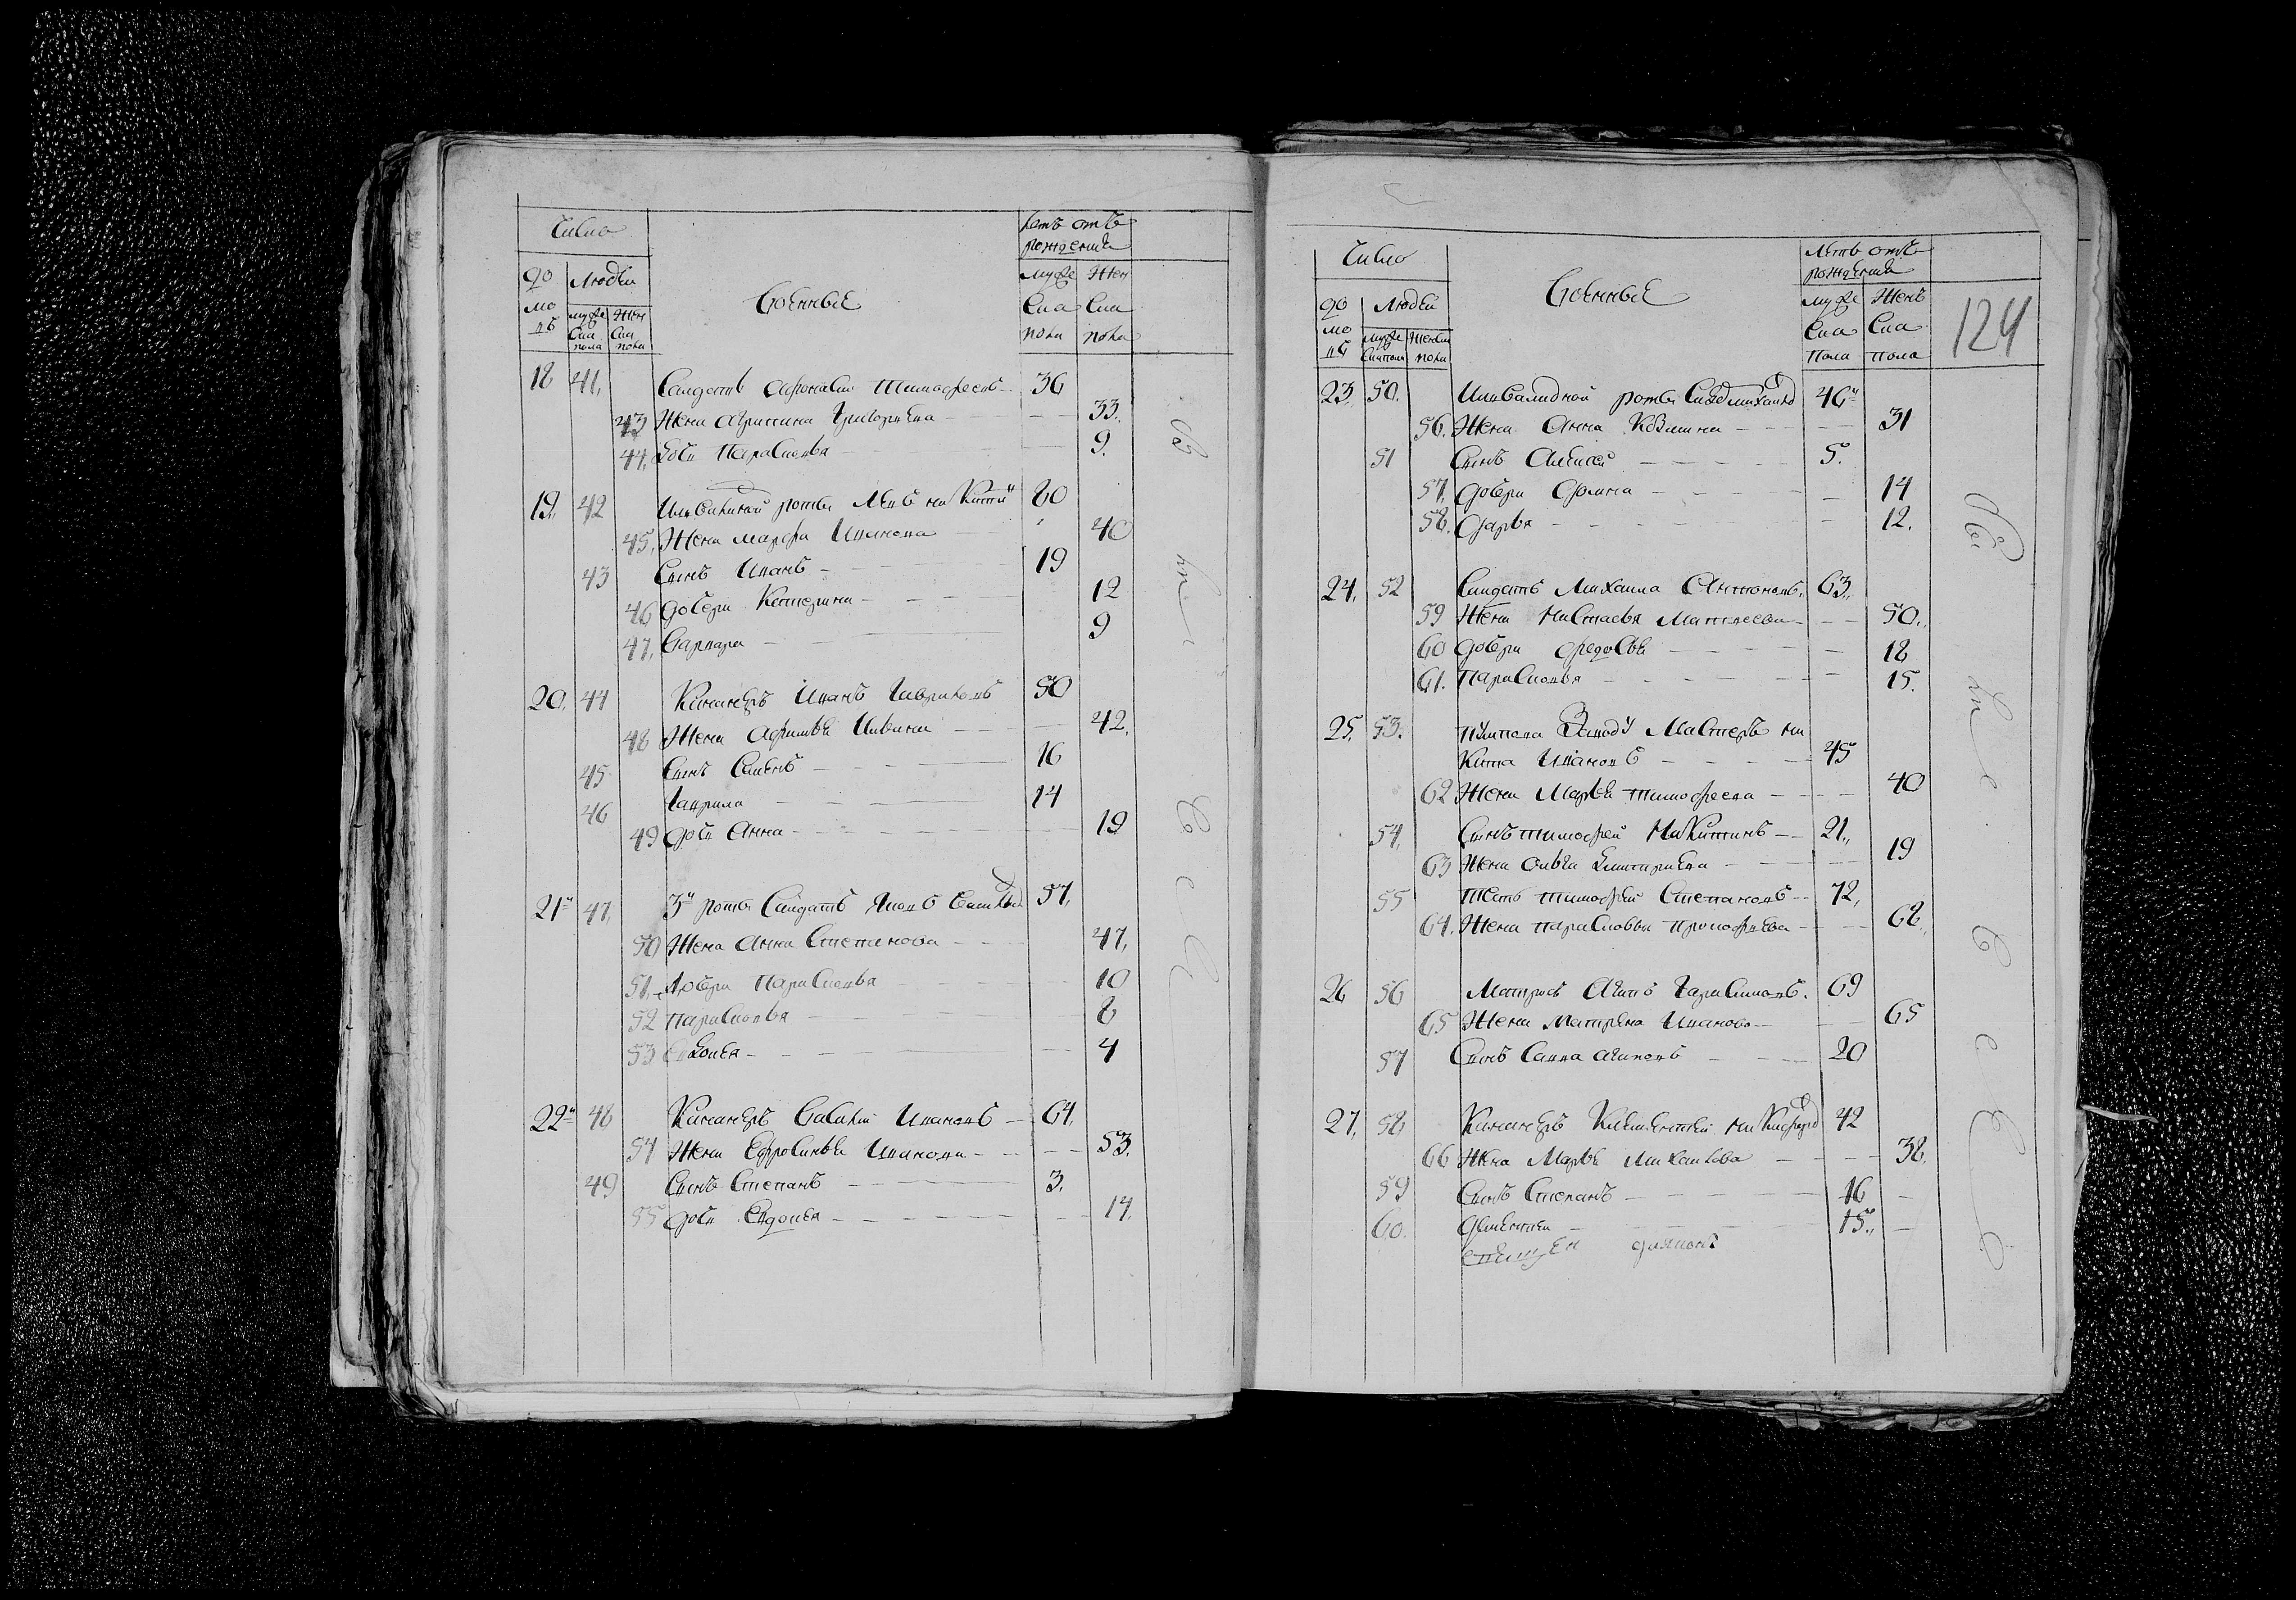 Число
Летъ отъ
рождения
до
мо
въ
Людей
муже
ска
пола
Жен
ска
пола
Военные
муже
ска
пола
Жен
ска
пола
18 41, Салдатъ Афонасей Тимофеевъ 36
43 Жена Агрипина Григорьева 33.
44, дочь Парасковья 9.
19, 42 Инвалидной роты Левъ Никити 60
45, Жена Марфа Иванова 40
43 Сынъ Иванъ 19
46 дочери Катерина 12
47, Варвара 9
20, 44 Канонеръ Иванъ Гавриловъ 50
48 Жена Афимья 42.
45 Сынъ Семенъ 16
46 Гаврила 14
49 дочь Анна 19
21 47, 3й роты Салдатъ Яковъ 57,
50 Жена Анна Степанова 47,
51, дочери Парасковья 10
52 Парасковья 8
53 Евдокея 4
22 48 Канонеръ Савелей Ивановъ 64,
54 Жена Ефросинья Иванова 53.
49 Сынъ Степанъ 3.
55 дочь Евдокея 14.
Во
Число
Летъ отъ
рождения
до
мо
въ
Людей
муже
ска пола
Женска
пола
Военные
муже
ска
пола
Женъ
ска
пола
124
23, 50. Инвалидной роты 46
56. Жена Анна Козмина 31
51 Сынъ Алексей 5.
57, дочери 14
58. Дарья 12.
24, 52 Салдатъ Михаила Антоновъ, 63,
59 Жена Настасья Матвеева 50.
60 дочери Федосья 18
61. Парасковья 15.
25, 53. Мастеръ Ни
кита Ивановъ 45
62 Жена Марья Тимофеева 40
54, Сынъ Тимофей Никитинъ 21,
63 Жена Ольга 19
55 Тесть Тимофей Степановъ 72,
64. Жена Парасковья Прокофьева 68.
26 56 Матросъ Агапъ Гарасимовъ. 69
65 Жена Матрена Иванова 65
57 Сынъ Савва Агаповъ 20
27, 58 Канонеръ Климентей Никифоро 42
66 Жена Марья Михайлова 38.
59 Сынъ Степанъ 16
60. Дементей 15.